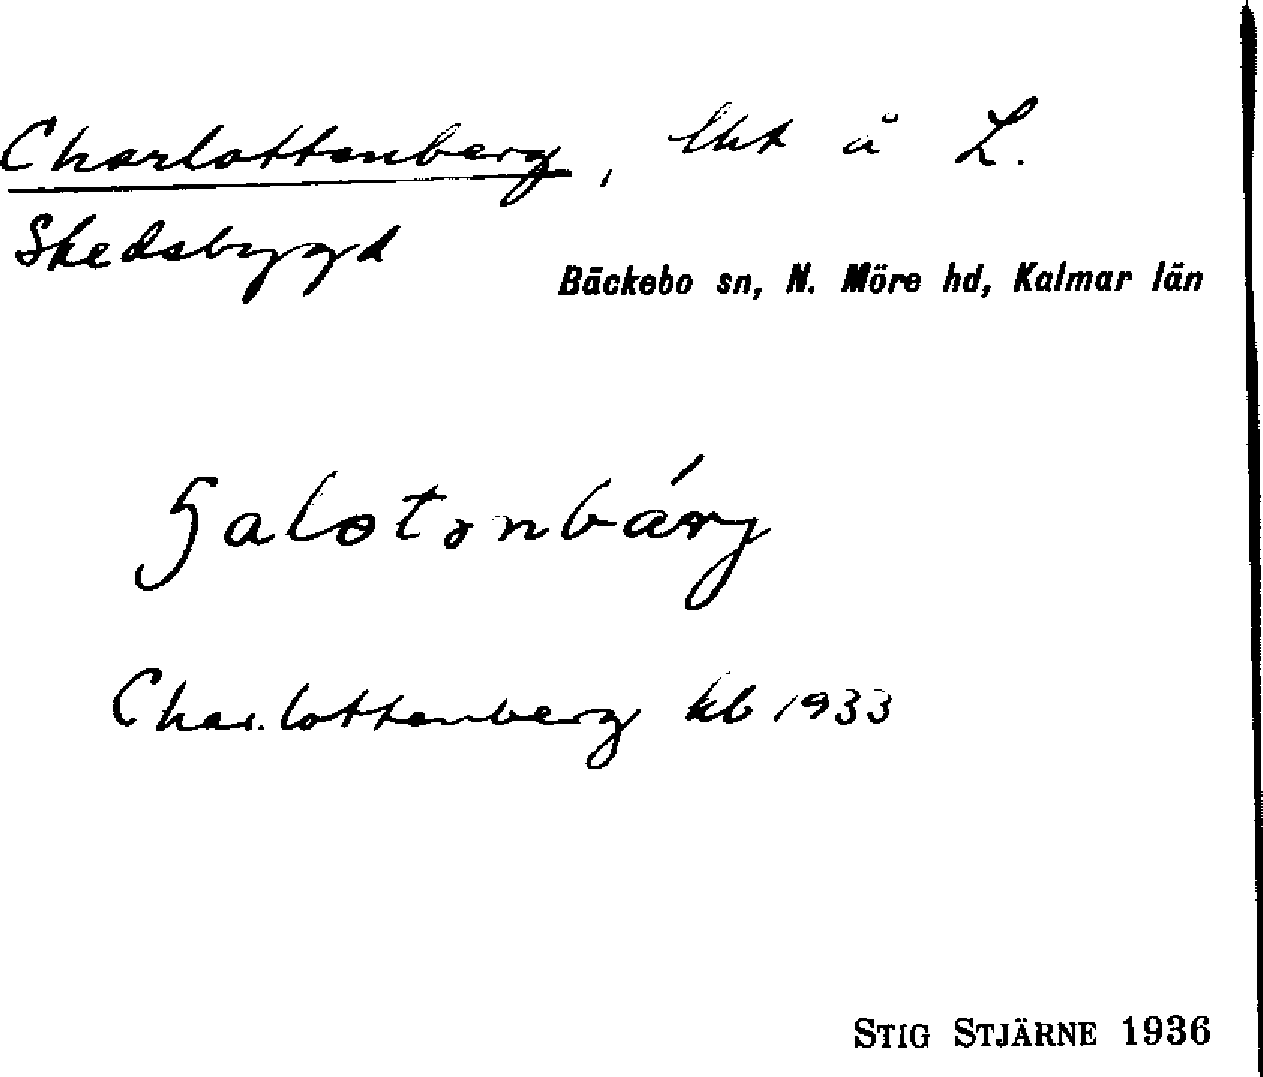 Charlottenberg, lht å L.
Skedsbygd
Bäckebo sn, N. Möre hd, Kalmar län
Charlottenberg kb 1933
STIG STJÄRNE 1936